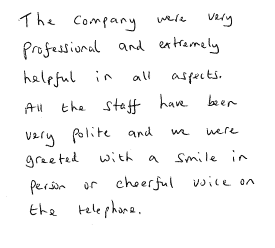 The Company were very
professional and extremely
helpful in all aspects.
All the staff have been
very polite and we were
greeted with a smile in
person or cheerful voice on
the telephone.